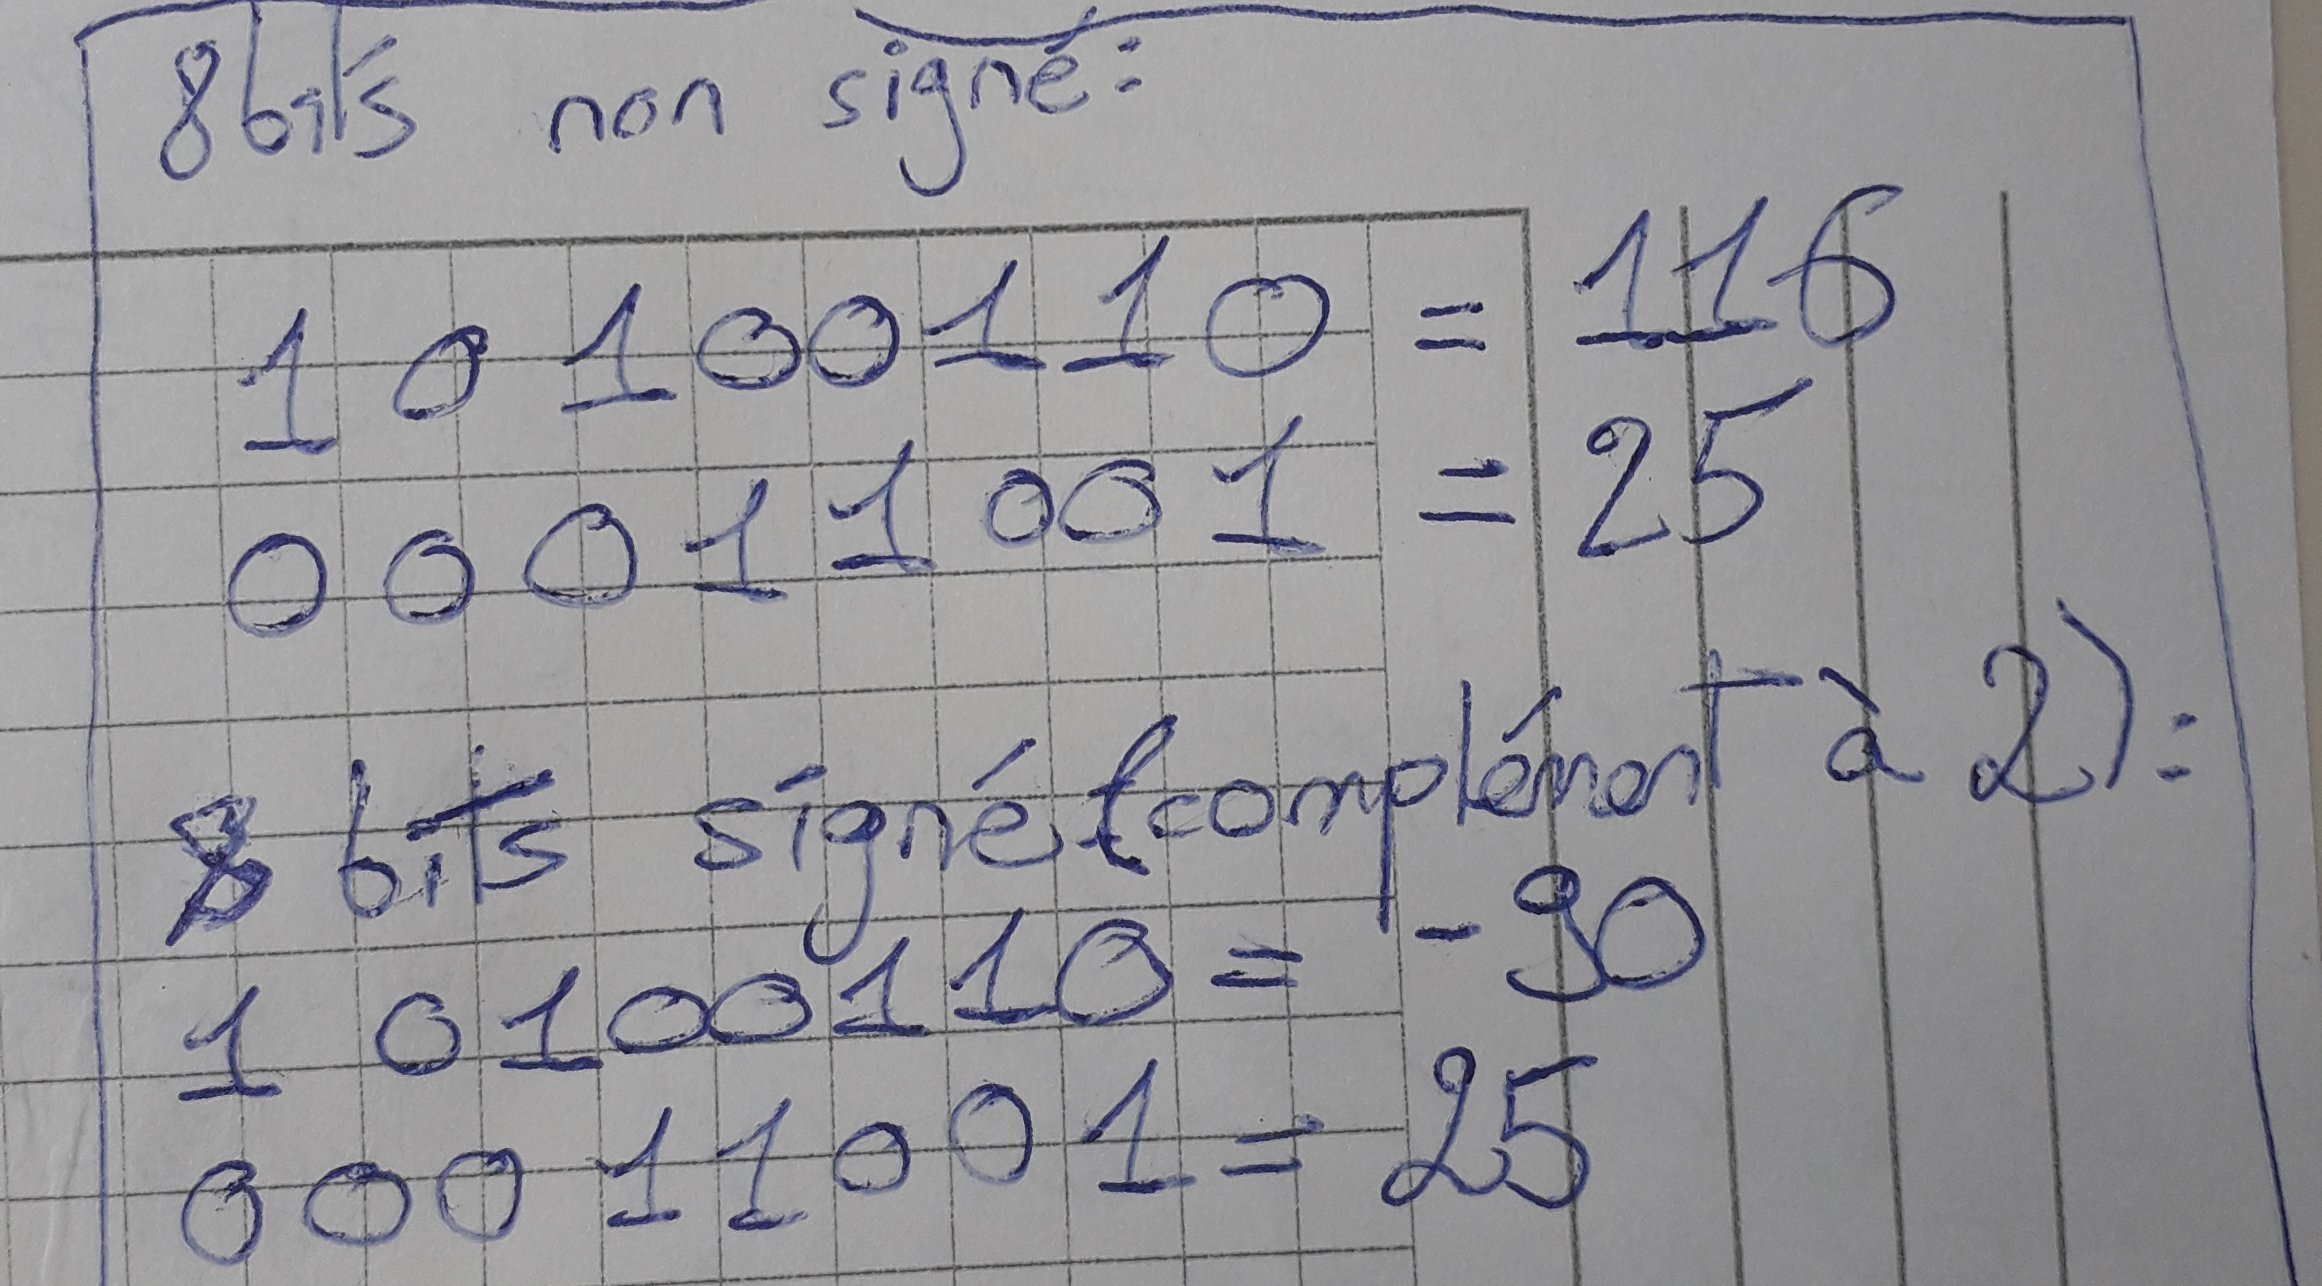 8bits non signé:
10100110 = 116
00011001 = 25
8 bits signé (complément à 2):
10100110 = -90
00011001 = 25